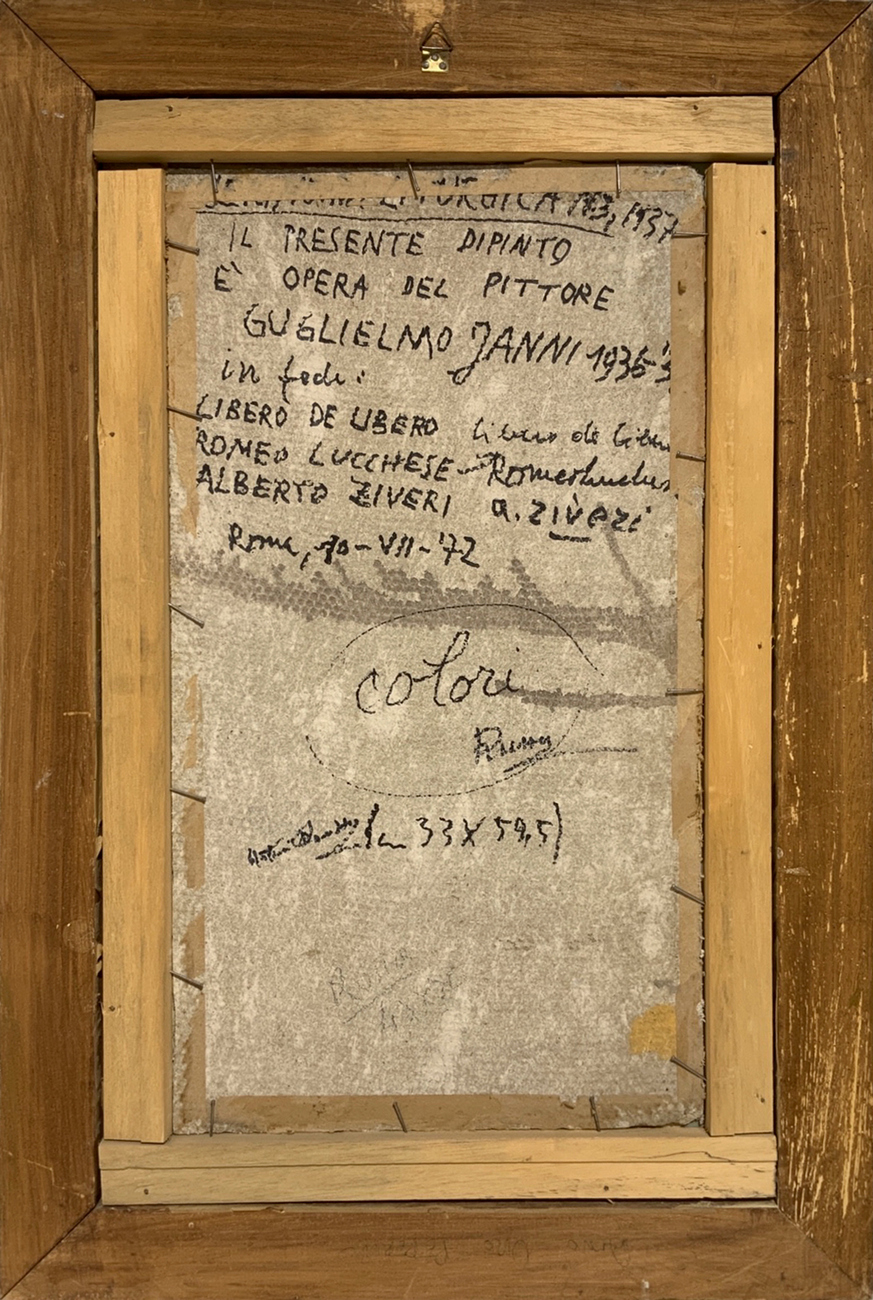 LITURGICA N°3, 1937
IL PRESENTE DIPINTO
E' OPERA DEL PITTORE
GUGLIELMO JANNI 1936-'3
in fede:
LIBERO DE LIBERO Libero de Libero
ROMEO LUCCHESE - Romeo Lucchese
ALBERTO ZIVERI a. ziveri
Roma, 30-VII-'72
colori
(cm 33 X 59,5)